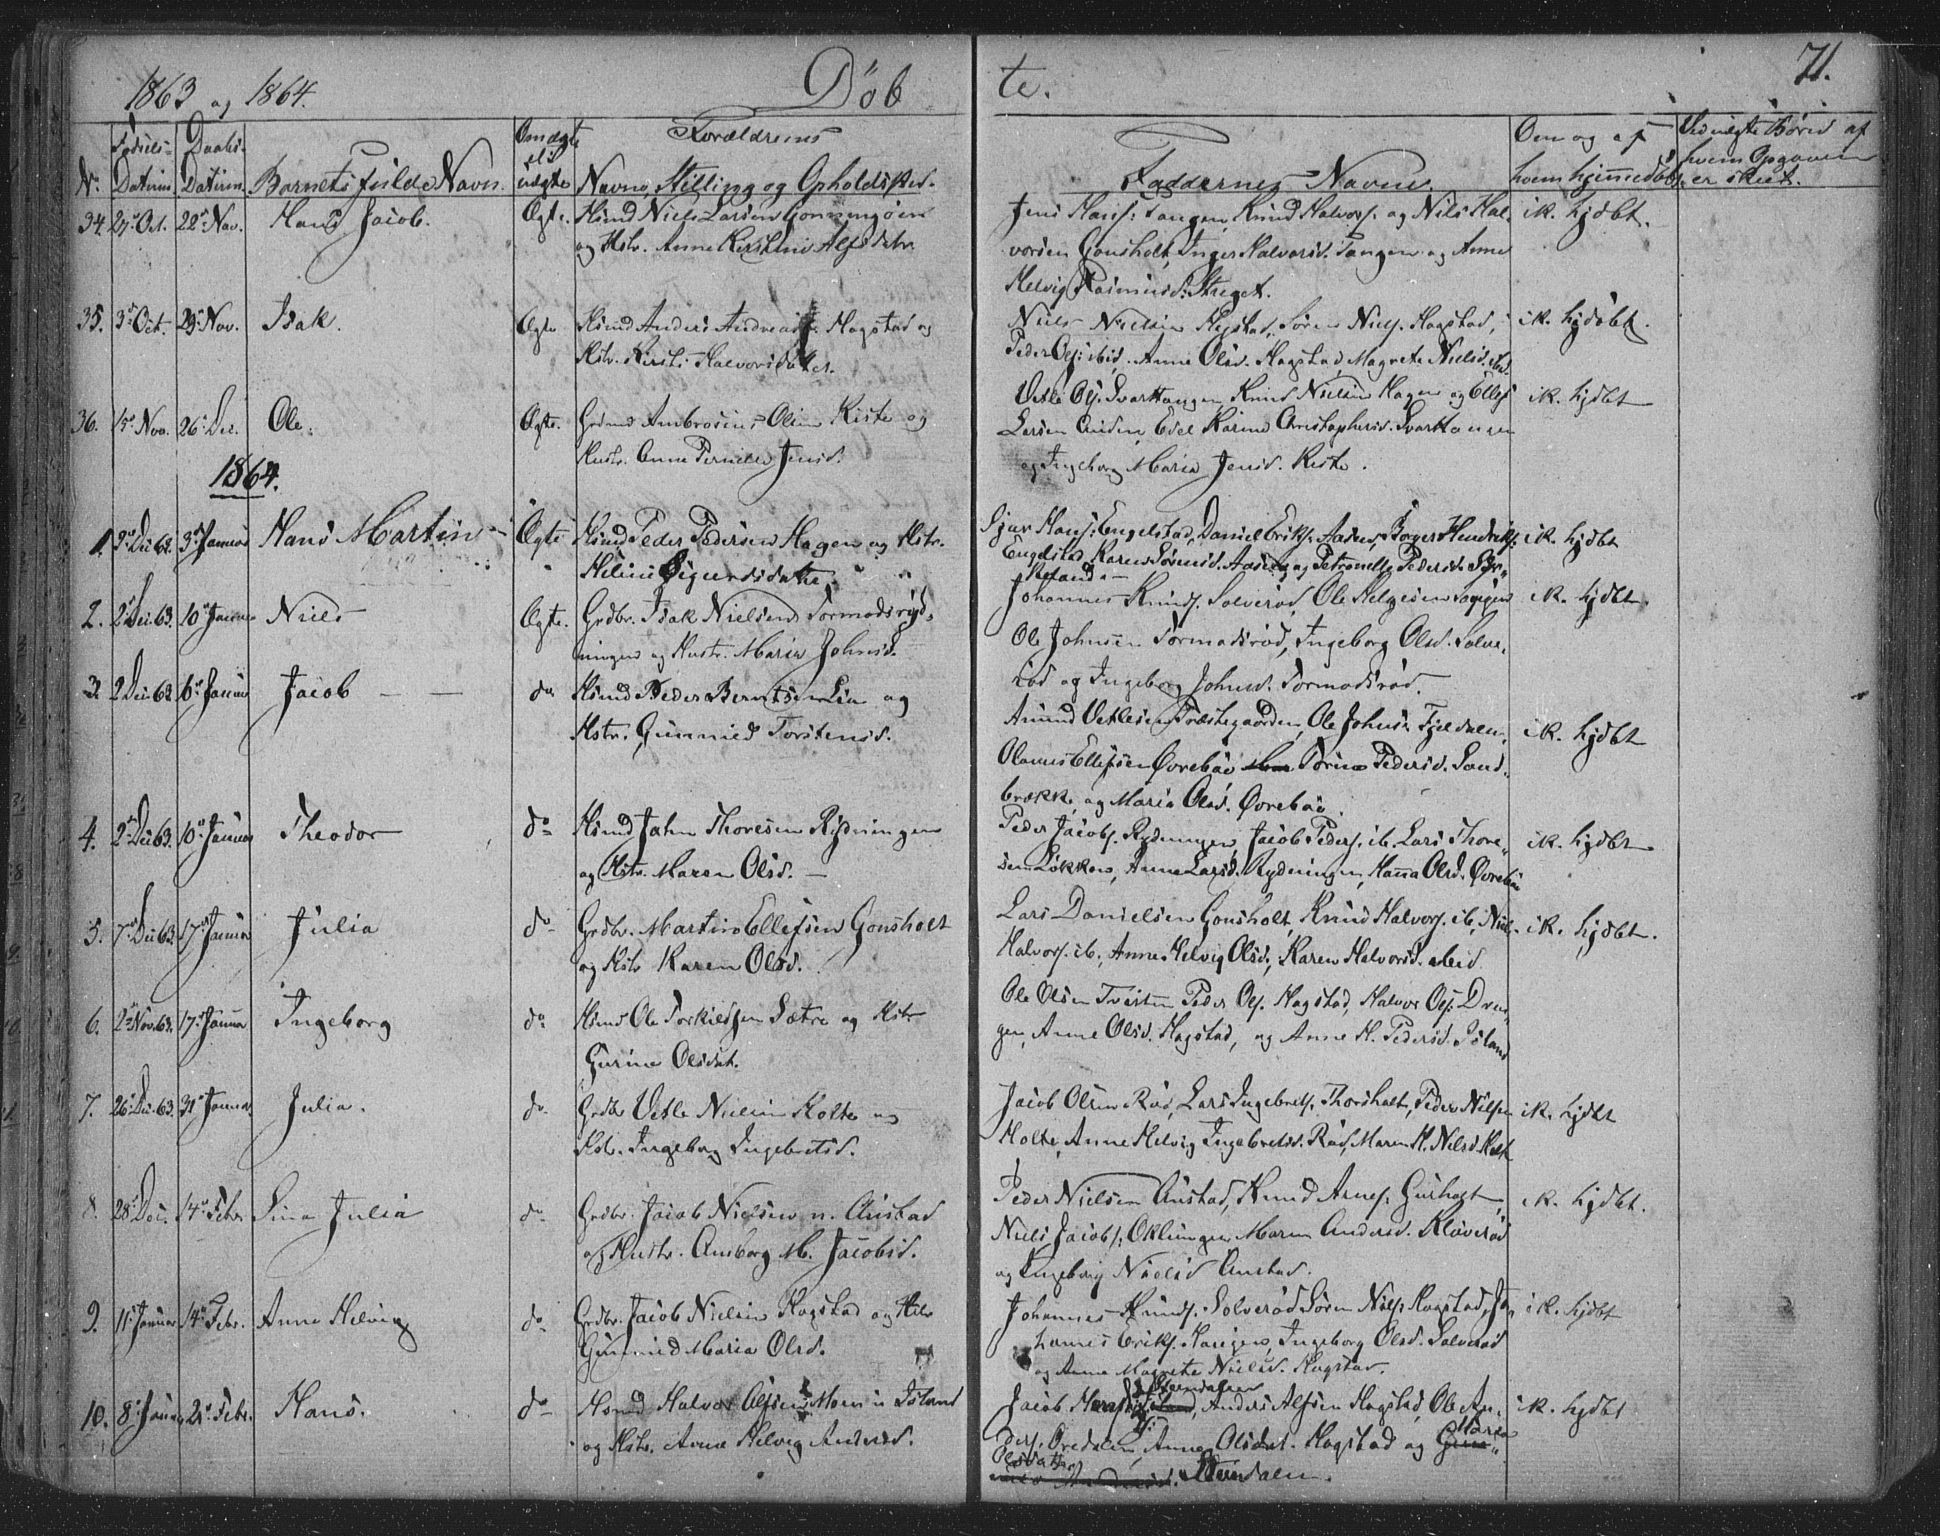 1863 og 1864.
Döb
te.
71.
No
Födsels-
Datum.
Daabs-
Datum.
Barnets fulde Navn.
Om ægte
el.
uægte
Forældrenes
Navne, Stilling og Opholdsted.
Faddernes Navne.
Om og af
hvem hjemmedöbt.
Ved uægte Börn af
hvem Opgaven
er skeet.
34. 27de Oct. 22de Nov. Hans Jacob. Ægte. Hsmd Niels Larsen
og Hstr. Anne Kirstine Alfsdatr.
Jens Hansf. Tangen, Knud Halvorsf. og Niels Hal
vorsen Gonsholt, Inger Halvorsd. Tangen og Anne
Helvig Rasmusd. Streget.
ik. hjdbt.
35. 3de Oct. 29de Nov. Isak. Ægte Hsmd Anders Andreasf. Hagstad og
Hstr. Kirsti Halvorsdatter.
Niels Nielsen Hagstad, Sören Nielsf. Hagstad,
Peder Olsf. ibid. Anne Olsd. Hagstad, Magrete Nielsd. ibid.
ik. hjdöbt.
36. 15de Nov. 26de Dec. Ole. Ægte. Grdmd Ambrosius Olsen Kiste og
Hustr. Anne Pernille Jensd.
Vetle Olsf. Svarttangen Knud Nielsen Hagen og Ellef
Larsen Auden, Edel Karine Christophersd. Svarttangen
og Ingeborg Maria Jensd. Kiste.
ik. hjdbt
1864.
1. 3de Dec 63. 3de Januar Hans Martin Ægte Hsmd Peder Pedersen Hagen og Hstr.
Heline Sigurdsdatter.
Sjur Hansf. Engelstad, Daniel Eriksf. Aasen, Börger Hendriksf.
Engelstad, Karen Sörensd. Aasen og Petronelle Pedersd.
ik. hjdbt
2. 2de Dec. 63. 10de Januar Niels Ægte. Grdbr. Isak Nielsen Tormodsröd-
ningen og Hustr. Maria Johnsd.
Johannes Knudsf. Solveröd, Ole Helgesen
Ole Johnsen Tormodsröd, Ingeborg Olsd. Solve-
röd og Ingeborg Johnsd. Tormodsröd.
ik. hjdbt.
3. 2 Dec 63 6te Januar Jacob do Hsmd Peder Berntsen Lia og
Hstr. Gunnild Torstensd.
Amund Vetlesen Præstegaarden, Ole Johnsen Fjeldalen,
Olaves Ellefsen Övreböe Torine Pedersd. Sand-
brække og Maria Olsd. Övreböe.
ik. hjdbt
4. 2de Dec 63. 10de Januar Theodor do Hsmd John Thoresen Rydningen
og Hstr. Maren Olsd.
Peder Jacobsf. Rydningen, Jacob Pedersf. ib. Lars Thore-
sen Lökken, Anne Larsd. Rydningen, Hanna Olsd. Övreböe
ik. hjdbt
5. 7de Dec 63. 17de Januar Julia do Grdbr. Martin Ellefsen Gonsholt
og Hstr Karen Olsd.
Lars Danielsen Gonsholt, Knud Halvorsf. ib, Niels
Halvorsf. ib., Anne Helvig Olsd., Karen Halvorsd. ibid
ik. hjdbt.
6. 2de Nov. 63. 17de Januar Ingeborg do Hsmd Ole Torkildsen Sætre og Hstr
Gurine Olsdat.
Ole Olsen Tveten Peder Olsf. Hagstad, Halvor Olsf. Dran-
gen, Anne Olsd. Hagstad, og Anne H. Pedersd. Island
7. 26de Dec. 63. 31te Januar. Julia. do. Grdbr Vetle Nielsen Holte og
Hstr. Ingeborg Ingebretsd.
Jacob Olsen Röd, Lars Ingebretsf. Thorsholt, Peder Nielsen
Holte, Anne Helvig Ingebretsd. Röd, Maren H. Nielsd Holte
ik. hjdbt
8. 28de Dec. 14de Febr. Lina Julia do Grdbr. Jacob Nielsen n. Austad
og Hustr. Amborg M. Jacobsd.
Peder Nielsen Austad, Knud Arnesf. Gusholt,
Niels Jacobsf. Oklungen Maren Andersd. Klöveröd
og Ingeborg Nielsd Austad.
ik. hjdbt.
9. 11te Januar 14de Febr. Anne Helvig do Grdbr. Jacob Nielsen Hagstad og Hstr
Gunnild Maria Olsd.
Johannes Knudsf. Solveröd, Sören Nielsf. Hagstad, Jo-
hannes Eriksf. Haugen, Ingeborg Olsd. Solveröd
og Anne Magrete Nielsd. Hagstad.
ik. hjdbt
10. 8de Januar 21de Febr. Hans. do Hsmd Halvor Alfsen Moen u Island
og Hstr. Anne Helvig Andersd.
Jacob Hansf. Stendalen, Anders Alfsen Hagstad, Ole An-
dersf. Oredalen, Anne Olsdat. Hagstad og Maren
Olsdatter Stendalen.
ik. hjdbt